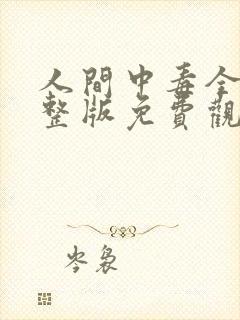 人間中毒全
整版免費觀
岑裊